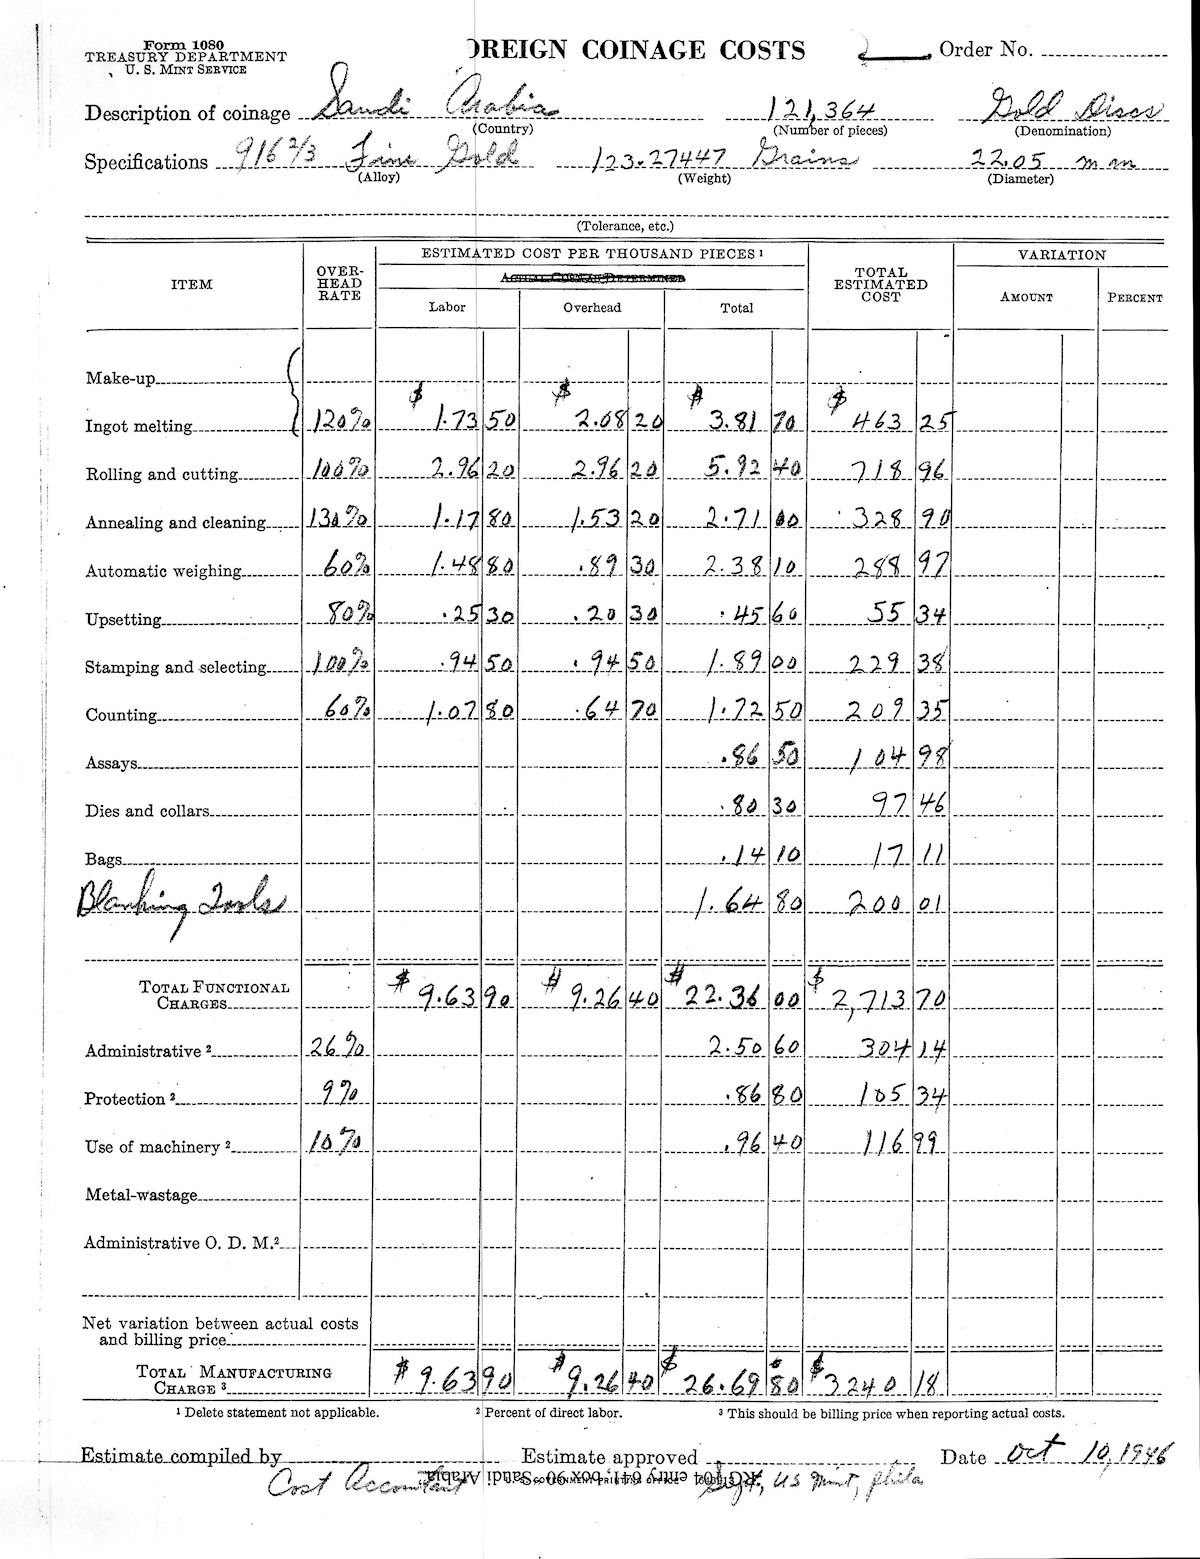 Form 1080
TREASURY DEPARTMENT
U. S. MINT SERVICE
OREIGN COINAGE COSTS
2 Order No.
Description of coinage Saudi Arabia 121,364 Gold Discs
(Country) (Number of pieces) (Denomination)
Specifications 916 2/3 Fine Gold 123.27447 Grains 22.05 mm
(Alloy) (Weight) (Diameter)
(Tolerance, etc.)
ITEM
OVER-
HEAD
RATE
ESTIMATED COST PER THOUSAND PIECES 1
ACTUAL COST AS DETERMINED
Labor Overhead Total
TOTAL
ESTIMATED
COST
VARIATION
AMOUNT PERCENT
Make-up
Ingot melting 120% $ 1.73 50 $ 2.08 20 $ 3.81 70 $ 463 25
Rolling and cutting 100% 2.96 20 2.96 20 5.92 40 718 96
Annealing and cleaning 130% 1.17 80 1.53 20 2.71 00 328 90
Automatic weighing 60% 1.48 80 .89 30 2.38 10 288 97
Upsetting 80% .25 30 .20 30 .45 60 55 34
Stamping and selecting 100% .94 50 .94 50 1.89 00 229 38
Counting 60% 1.07 80 .64 70 1.72 50 209 35
Assays .86 50 104 98
Dies and collars .80 30 97 46
Bags .14 10 17 11
Blanking Tools 1.64 80 200 01
TOTAL FUNCTIONAL
CHARGES $ 9.63 90 $ 9.26 40 $ 22.36 00 $ 2,713 70
Administrative 2 26% 2.50 60 304 14
Protection 2 9% .86 80 105 34
Use of machinery 2 10% .96 40 116 99
Metal-wastage
Administrative O. D. M.2
Net variation between actual costs
and billing price
TOTAL MANUFACTURING
CHARGE 3 $ 9.63 90 $ 9.26 40 $ 26.69 80 $ 3240 18
1 Delete statement not applicable. 2 Percent of direct labor. 3 This should be billing price when reporting actual costs.
Estimate compiled by Estimate approved Date Oct 10, 1946
Cost Accountant RG 104 entry 641, box 90 Saudi Arabia Supt, US Mint, Phila